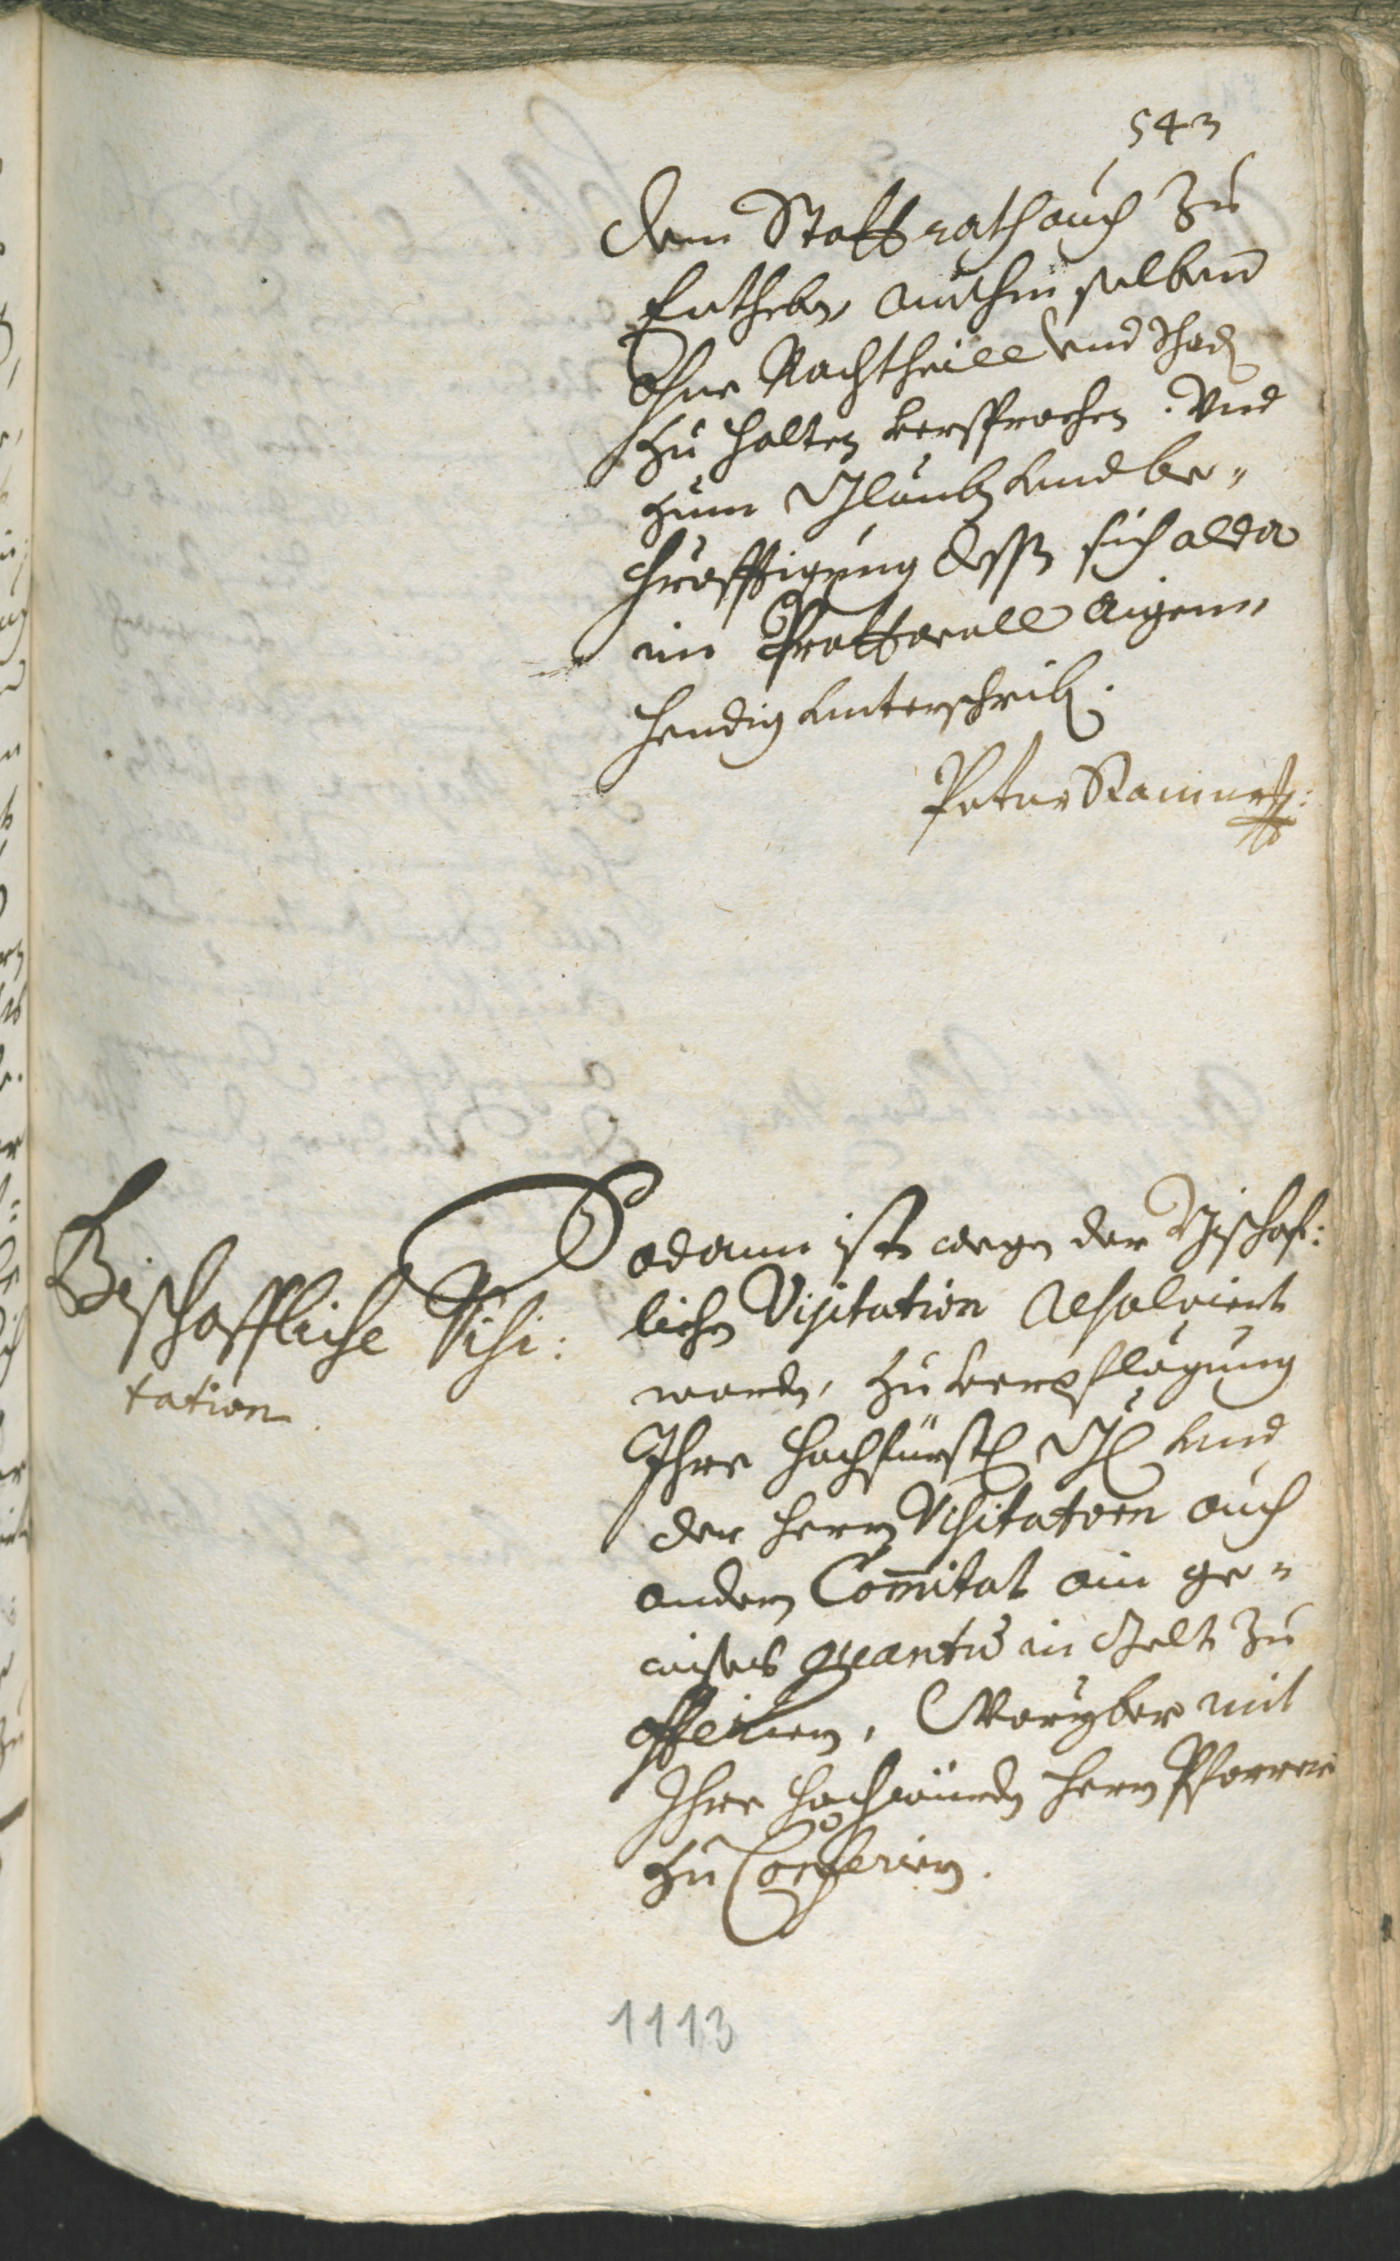 543
dem Stattrath auch zu
Entheben, mithin selben
Ohne Nachtheill vnd Schad
zu halten versprochen. Vnd
zum Glauben vnd be-
khrefftigung dessen sich alda
im Prottocoll aigen-
hendig vnterschriben.
Peter Ramier
Bischoffliche Visi:
tation
Sodann ist wegen der Bischof:
lichen Visitation Resolviert
worden, zu verpflegung
Ihro hochfürstl Gl vnd
der herrn Visitatorn auch
andern Comitat ein ge-
wises quantum in Gelt zu
offerieren, Woryber mit
Ihro hochwürden herrn Pfarrer
zu Conferiern.
1113